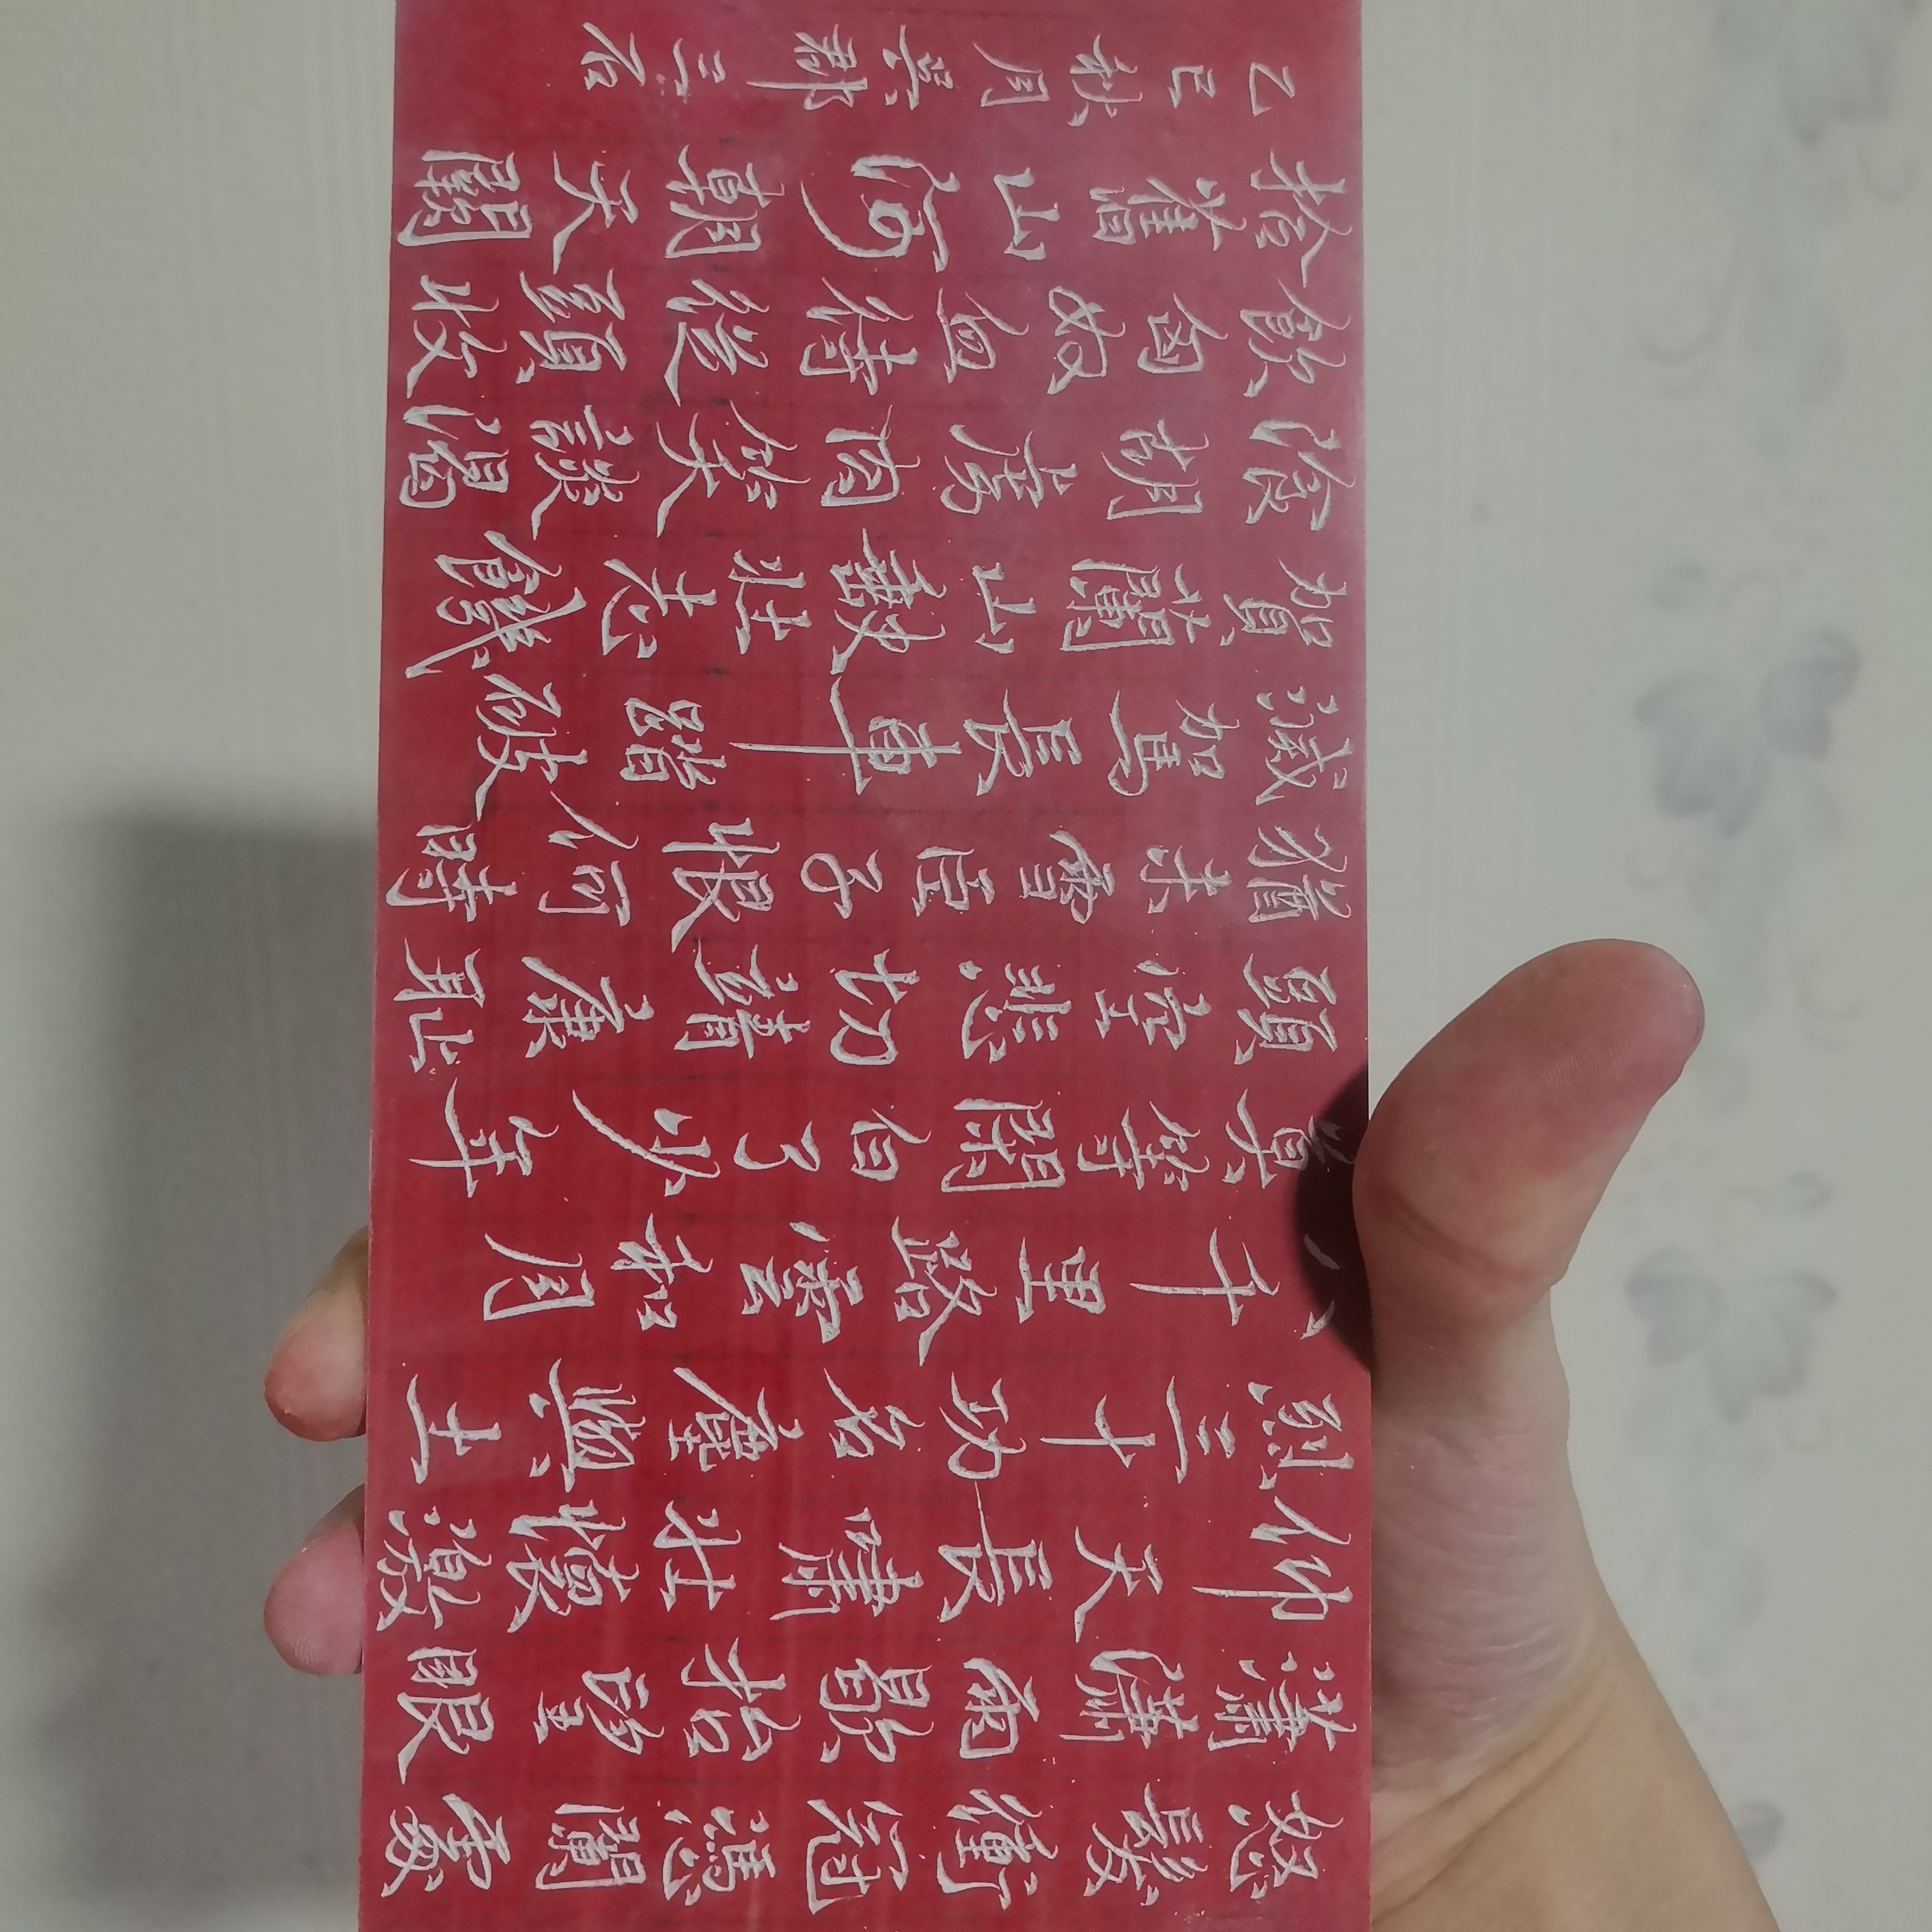 怒髮衝冠憑闌處
瀟瀟雨歇抬望眼
仰天長嘯壯懷激
烈三十功名塵與土
八千里路雲和月
莫等閑白了少年
頭空悲切靖康耻
猶未雪臣子恨何時
滅駕長車踏破
賀蘭山缺壯志饑
湌胡虜肉笑談渴
飲匈奴血待從頭收
拾舊山河朝天闕
乙巳秋月吳郡三石